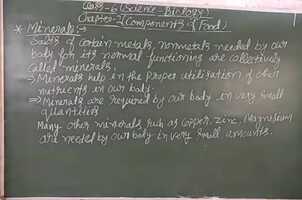 Class-6 (Science-Biology)
Chapter-2 (Components of Food)
* Minerals:-
Salts of certain metals, nonmetals needed by our
body for its normal functioning are collectively
called minerals.
→ Minerals help in the proper utilisation of other
nutrients in our body.
→ Minerals are required by our body in very small
quantities
Many other minerals such as copper, zinc, Magnesium
are needed by our body in very small amounts.